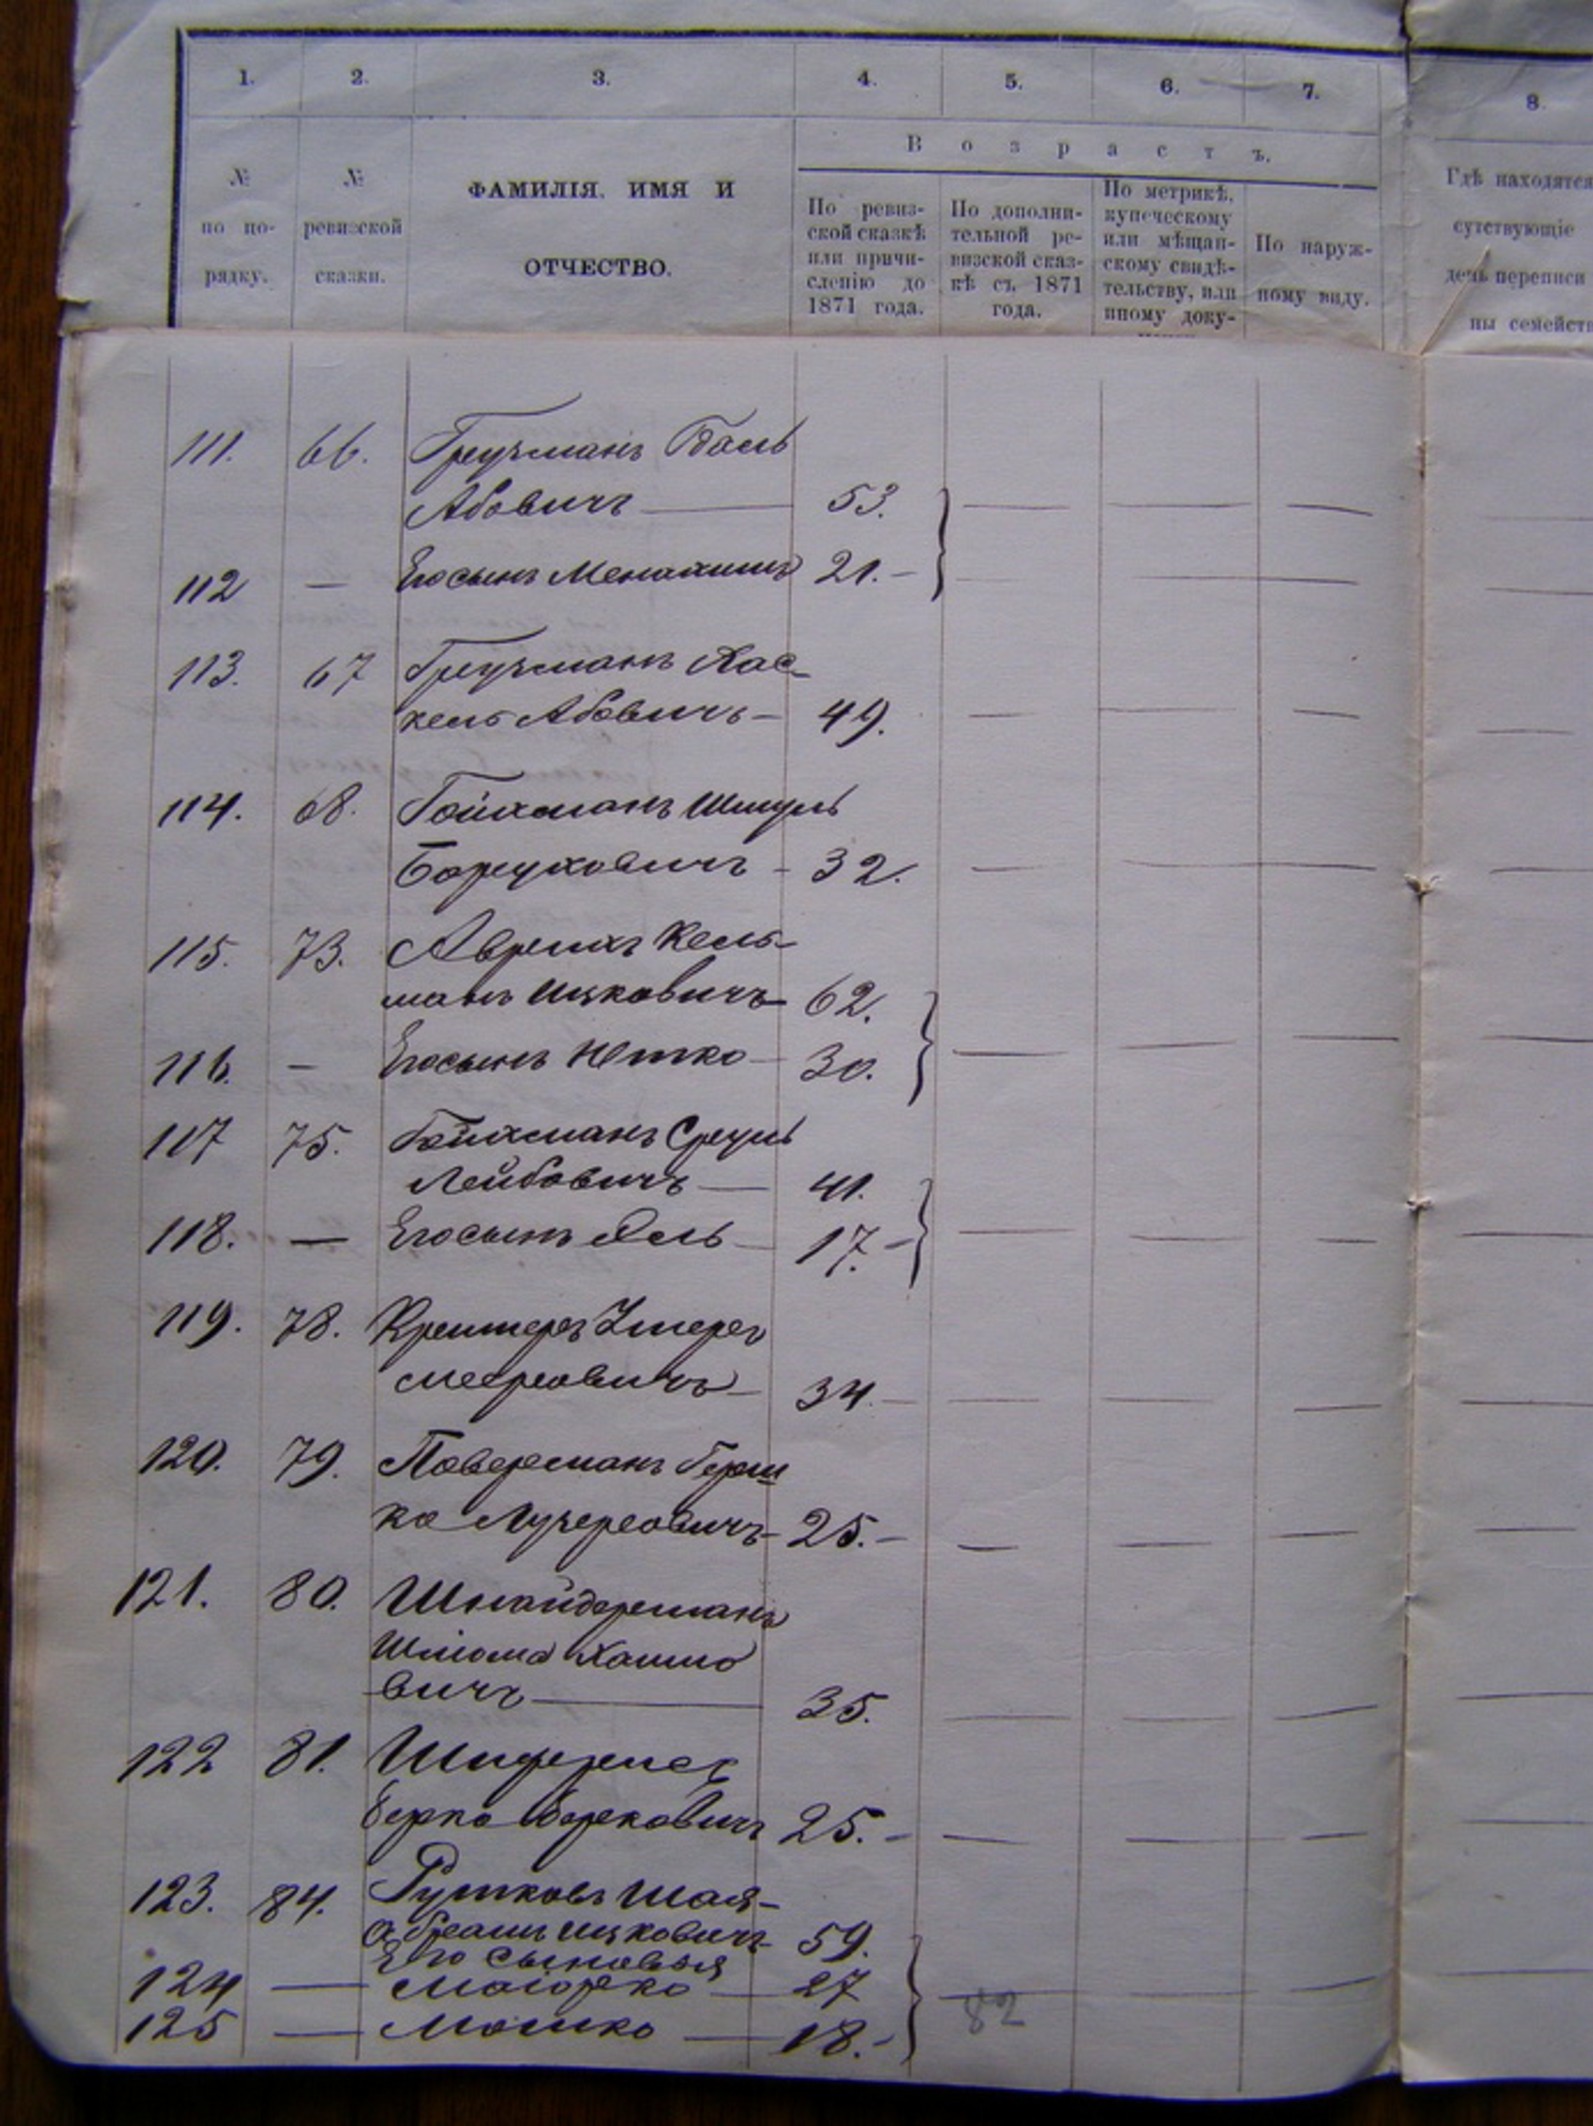 1. 2. 3. 4. 5. 6. 7. 8.
В о з р а с т ъ.
№ по по-рядку.
№ ревизской сказки.
ФАМИЛІЯ, ИМЯ И
ОТЧЕСТВО.
По ревиз-
ской сказкѣ
или причи-
сленію до
1871 года.
По дополни-
тельной ре-
визской сказ-
кѣ съ 1871
года.
По метрикѣ,
купеческому
или мѣщан-
скому свидѣ-
тельству, или
иному доку-
По наруж-
ному виду.
Гдѣ находятся
сутствующіе
день переписи
ны семейств
111. 66.
Абовичъ — 53.
112 — Его сынъ Менахимъ 21. —
113. 67 Хас-
кель Абовичъ — 49.
114. 68. Гойхманъ Шмуль
Боруховичъ — 32.
115. 73. Кель-
манъ Ицковичъ — 62.
116. — Его сынъ Ютко — 30.
117 75. Гойхманъ Сруль
Лейбовичъ — 41.
118. — Его сынъ — 17. —
119. 78.
34. —
120. 79. Поверманъ Герш
ко — 25. —
121. 80. Шнайдерманъ
Шлиома Хаимо
вичъ — 35.
122 81.
Берко Берковичъ 25. —
123. 84. Шая-
Абрамъ Ицковичъ 59.
Его сыновья
124 — Маiорко — 27
125 — Мошко — 18. —
82